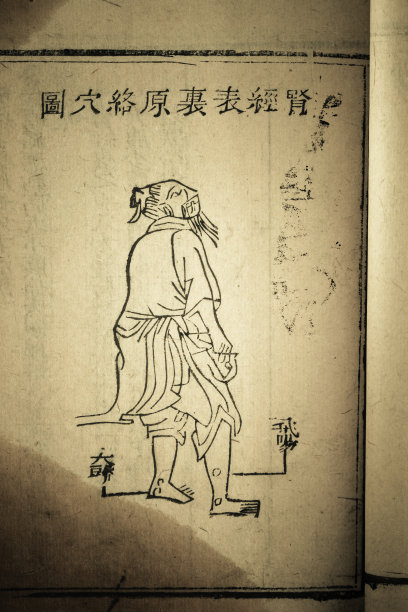 腎經表裏原絡穴圖
飛
太谿